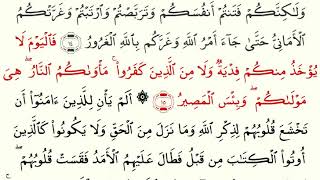 وَلَـٰكِنَّكُمْ فَتَنتُمْ أَنفُسَكُمْ وَتَرَبَّصْتُمْ وَٱرْتَبْتُمْ وَغَرَّتْكُمُ
ٱلْأَمَانِىُّ حَتَّىٰ جَآءَ أَمْرُ ٱللَّهِ وَغَرَّكُم بِٱللَّهِ ٱلْغَرُورُ ١٤ فَٱلْيَوْمَ لَا
يُؤْخَذُ مِنكُمْ فِدْيَةٌ وَلَا مِنَ ٱلَّذِينَ كَفَرُوا۟ ۚ مَأْوَىٰكُمُ ٱلنَّارُ ۖ هِىَ
مَوْلَىٰكُمْ ۖ وَبِئْسَ ٱلْمَصِيرُ ١٥ ۞ أَلَمْ يَأْنِ لِلَّذِينَ ءَامَنُوٓا۟ أَن
تَخْشَعَ قُلُوبُهُمْ لِذِكْرِ ٱللَّهِ وَمَا نَزَلَ مِنَ ٱلْحَقِّ وَلَا يَكُونُوا۟ كَٱلَّذِينَ
أُوتُوا۟ ٱلْكِتَـٰبَ مِن قَبْلُ فَطَالَ عَلَيْهِمُ ٱلْأَمَدُ فَقَسَتْ قُلُوبُهُمْ ۖ